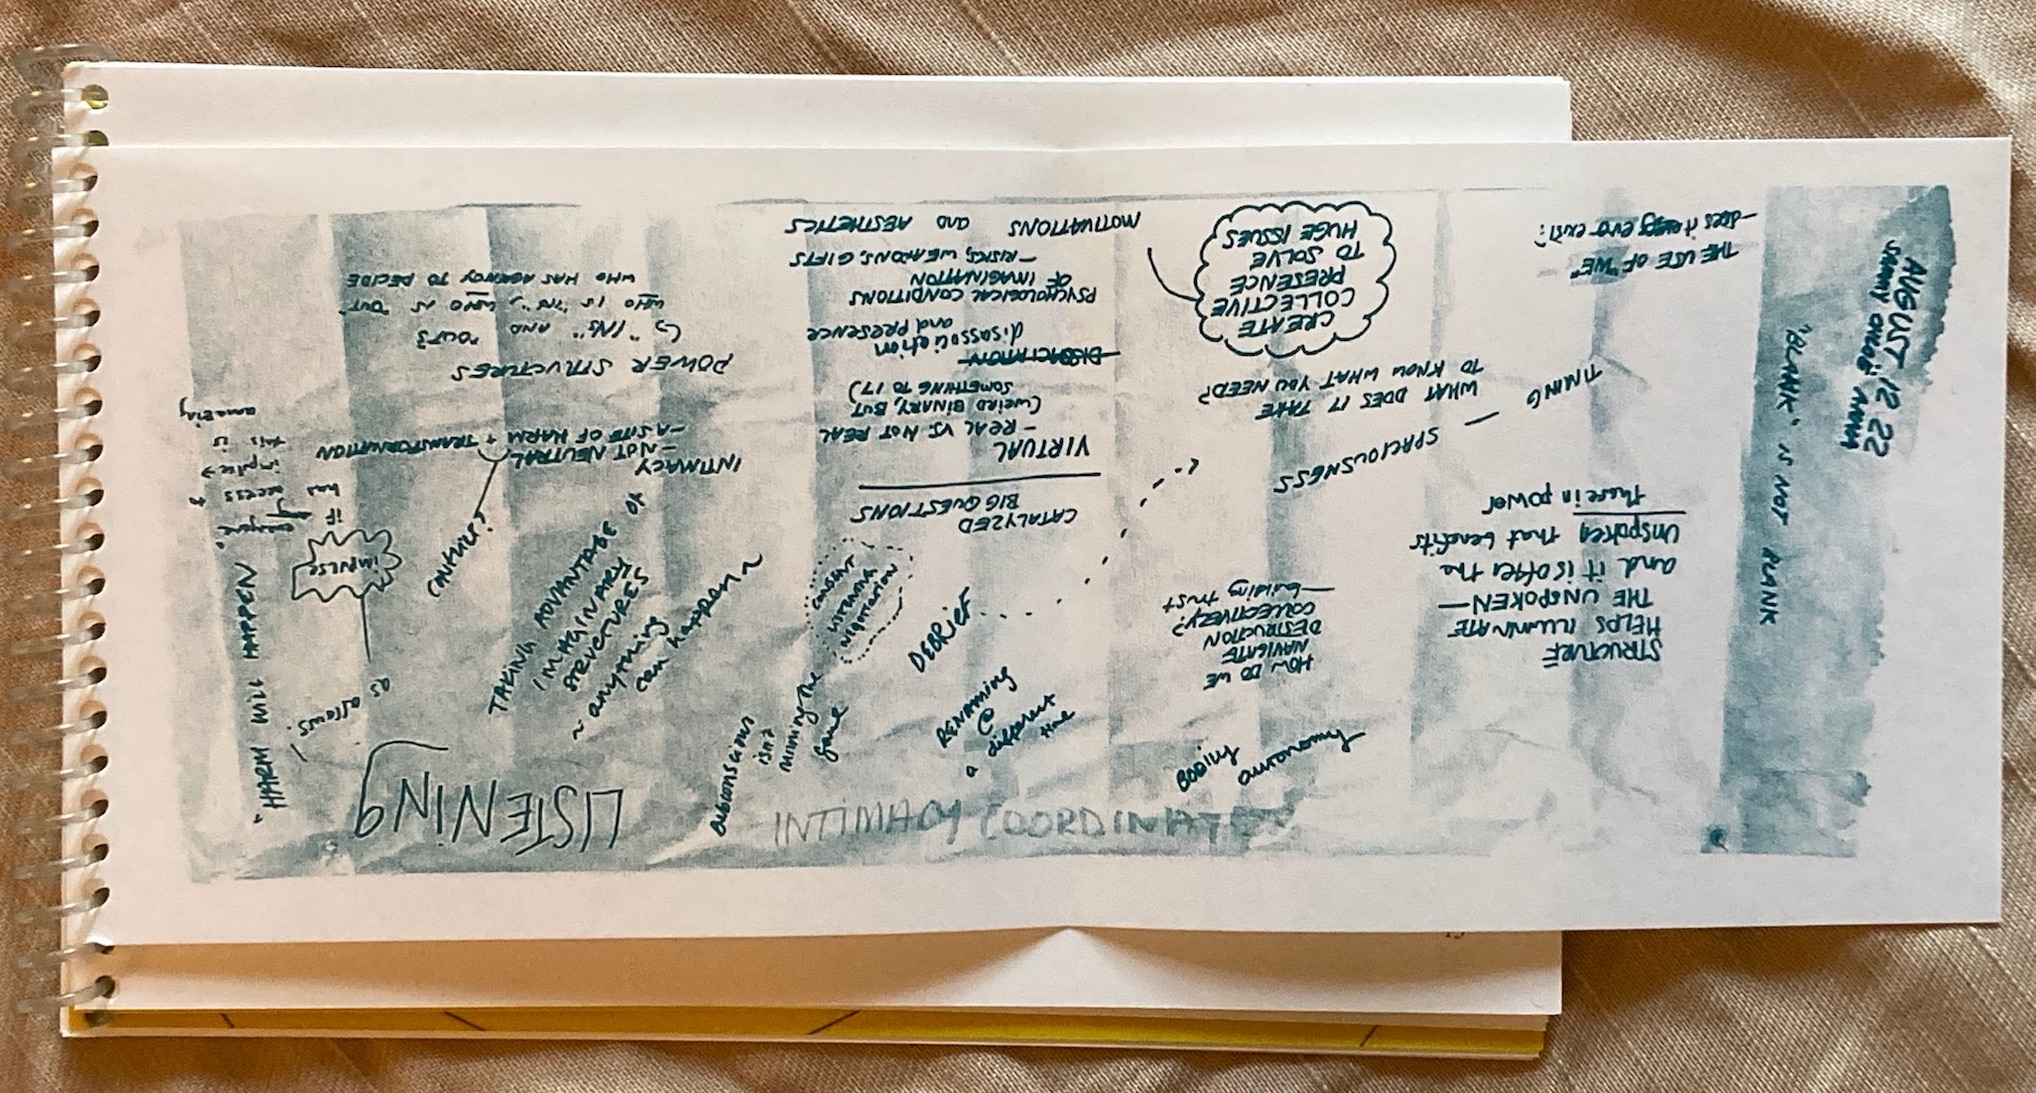 AUGUST 12 22
"BLANK" IS NOT BLANK
THE USE OF "WE"
—does it ever exist?
STRUCTURE
HELPS ILLUMINATE
THE UNSPOKEN—
and it is often the
unspoken that benefits
those in power
TIMING — SPACIOUSNESS
WHAT DOES IT TAKE
TO KNOW WHAT YOU NEED?
CREATE
COLLECTIVE
PRESENCE
TO SOLVE
HUGE ISSUES
HOW DO WE
NAVIGATE
DESTRUCTION
COLLECTIVELY?
—building trust
BODILY
autonomy
MOTIVATIONS and AESTHETICS
PSYCHOLOGICAL CONDITIONS
OF IMAGINATION
—RISKS, WEAPONS, GIFTS
disassociation
and presence
VIRTUAL
- REAL VS. NOT REAL
(WEIRD BINARY, BUT
SOMETHING TO IT?)
CATALYZED
BIG QUESTIONS
DEBRIEF
RENAMING
@
a different
time
consent
listening
negotiation
subconscious
isn't
running the
game
INTIMACY COORDINATES
LISTENING
as always.
impulse
TAKING ADVANTAGE OF
IMAGINARY
STRUCTURES
~ anything
can happen ~
INTIMACY
-NOT NEUTRAL
-A SITE OF HARM + TRANSFORMATION
CANTHIS?
POWER STRUCTURES
↳ "INS" AND "OUTS"
WHO IS "IN", WHO IS "OUT"
WHO HAS AGENCY TO DECIDE
"HARM WILL HAPPEN
if everyone
has access to
impulse →
this is
amazing